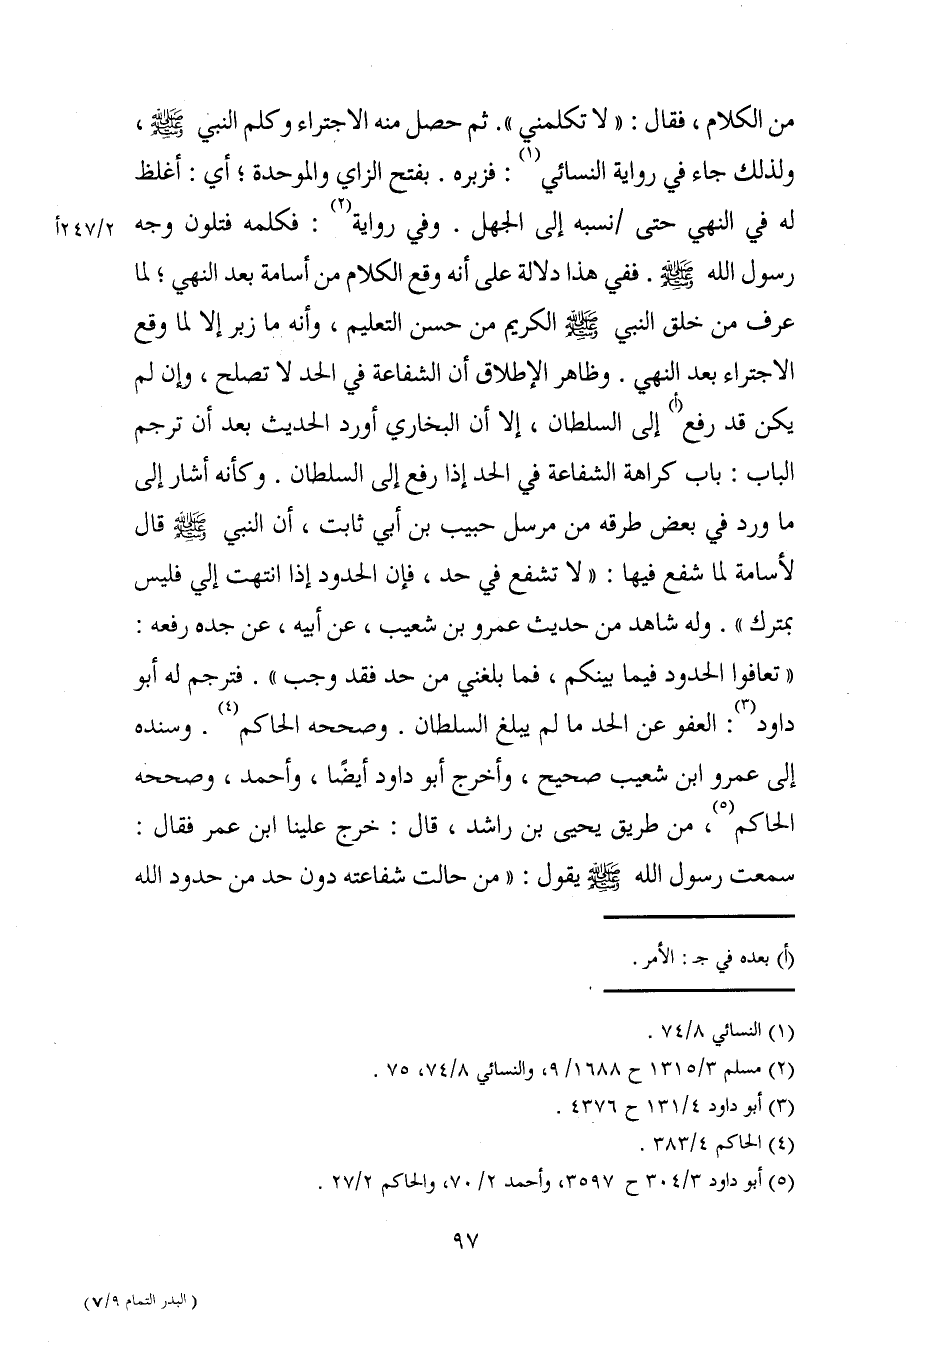 من الكلام ، فقال : « لا تكلمني ». ثم حصل منه الاجتراء وكلم النبي ﷺ ،
ولذلك جاء في رواية النسائي(١) : فزبره . بفتح الزاي والموحدة ؛ أي : أغلظ
له في النهي حتى /نسبه إلى الجهل . وفي رواية(٢) : فكلمه فتلون وجه ٢٤٧/٢أ
رسول الله ﷺ . ففي هذا دلالة على أنه وقع الكلام من أسامة بعد النهي ؛ لما
عرف من خلق النبي ﷺ الكريم من حسن التعليم ، وأنه ما زبر إلا لما وقع
الاجتراء بعد النهي . وظاهر الإطلاق أن الشفاعة في الحد لا تصلح ، وإن لم
يكن قد رفع(أ) إلى السلطان ، إلا أن البخاري أورد الحديث بعد أن ترجم
الباب : باب كراهة الشفاعة في الحد إذا رفع إلى السلطان . وكأنه أشار إلى
ما ورد في بعض طرقه من مرسل حبيب بن أبي ثابت ، أن النبي ﷺ قال
لأسامة لما شفع فيها : « لا تشفع في حد ، فإن الحدود إذا انتهت إلي فليس
بمترك » . وله شاهد من حديث عمرو بن شعيب ، عن أبيه ، عن جده رفعه :
« تعافوا الحدود فيما بينكم ، فما بلغني من حد فقد وجب » . فترجم له أبو
داود(٣) : العفو عن الحد ما لم يبلغ السلطان . وصححه الحاكم(٤) . وسنده
إلى عمرو ابن شعيب صحيح ، وأخرج أبو داود أيضًا ، وأحمد ، وصححه
الحاكم(٥)، من طريق يحيى بن راشد ، قال : خرج علينا ابن عمر فقال :
سمعت رسول الله ﷺ يقول : « من حالت شفاعته دون حد من حدود الله
(أ) بعده في جـ : الأمر .
(١) النسائي ٧٤/٨ .
(٢) مسلم ١٣١٥/٣ ح ٩/١٦٨٨، والنسائي ٧٤/٨، ٧٥ .
(٣) أبو داود ١٣١/٤ ح ٤٣٧٦ .
(٤) الحاكم ٣٨٣/٤ .
(٥) أبو داود ٣٠٤/٣ ح ٣٥٩٧، وأحمد ٧٠/٢، والحاكم ٢٧/٢ .
٩٧
( البدر التمام ٧/٩)